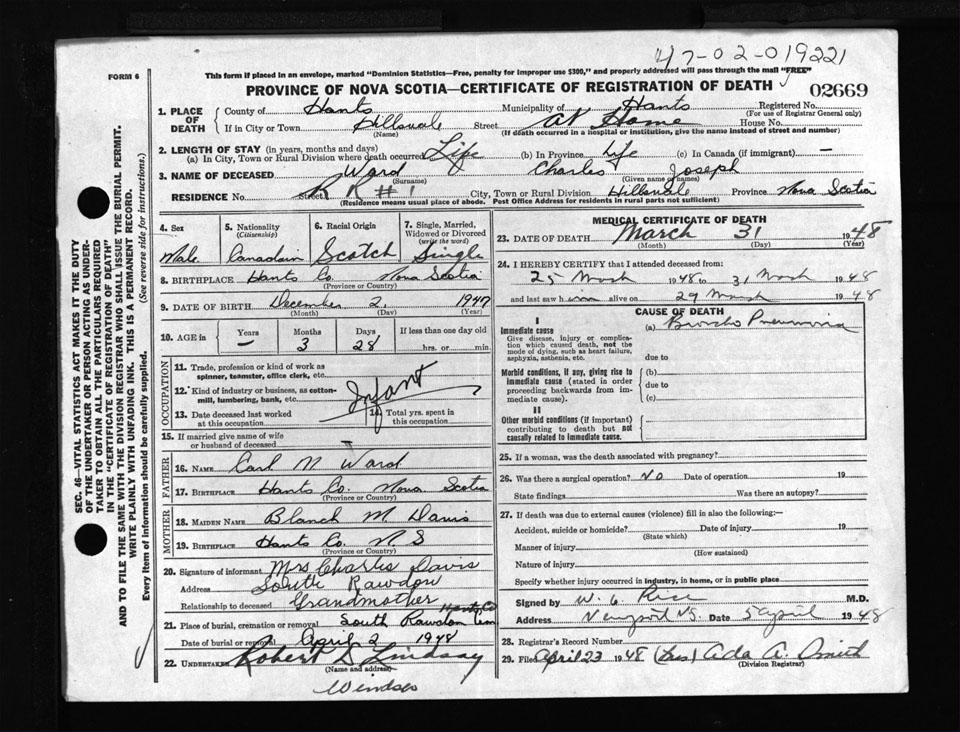 47-02-019221
FORM 6
This form if placed in an envelope, marked "Dominion Statistics—Free, penalty for improper use $300," and properly addressed will pass through the mail "FREE"
PROVINCE OF NOVA SCOTIA—CERTIFICATE OF REGISTRATION OF DEATH
02669
1. PLACE OF DEATH
County of Hants Municipality of Hants Registered No.
(For use of Registrar General only)
If in City or Town Hillsvale Street At Home House No.
(Name) (If death occurred in a hospital or institution, give the name instead of street and number)
2. LENGTH OF STAY (in years, months and days)
(a) In City, Town or Rural Division where death occurred Life (b) In Province Life (c) In Canada (if immigrant) —
3. NAME OF DECEASED Ward Charles Joseph
(Surname) (Given name or names)
RESIDENCE No. Street R R # 1 City, Town or Rural Division Hillsvale Province Nova Scotia
(Residence means usual place of abode. Post Office Address for residents in rural parts not sufficient)
4. Sex
Male
5. Nationality
(Citizenship)
Canadian
6. Racial Origin
Scotch
7. Single, Married, Widowed or Divorced
(write the word)
Single
8. BIRTHPLACE Hants Co. Nova Scotia
(Province or Country)
9. DATE OF BIRTH December 2. 1947
(Month) (Day) (Year)
10. AGE in
Years Months Days If less than one day old
— 3 28 hrs. or min.
OCCUPATION
11. Trade, profession or kind of work as spinner, teamster, office clerk, etc.
12. Kind of industry or business, as cotton-mill, lumbering, bank, etc.
Infant
13. Date deceased last worked at this occupation
14. Total yrs. spent in this occupation
15. If married give name of wife or husband of deceased
FATHER
16. NAME Carl N. Ward
17. BIRTHPLACE Hants Co. Nova Scotia
(Province or Country)
MOTHER
18. MAIDEN NAME Blanch M. Davis
19. BIRTHPLACE Hants Co. N S
(Province or Country)
20. Signature of informant Mrs Charles Davis
Address South Rawdon
Relationship to deceased Grandmother
Hants Co
21. Place of burial, cremation or removal South Rawdon Cem
Date of burial or removal April 2 1948
22. UNDERTAKER Robert S Lindsay
(Name and address)
Windsor
MEDICAL CERTIFICATE OF DEATH
23. DATE OF DEATH March 31 1948
(Month) (Day) (Year)
24. I HEREBY CERTIFY that I attended deceased from:
25 March 1948 to 31 March 1948
and last saw him alive on 29 March 1948
CAUSE OF DEATH
I
Immediate cause
Give disease, injury or complication which caused death, not the mode of dying, such as heart failure, asphyxia, asthenia, etc.
(a) Broncho Pneumonia
due to
Morbid conditions, if any, giving rise to immediate cause (stated in order proceeding backwards from immediate cause).
(b)
due to
(c)
II
Other morbid conditions (if important) contributing to death but not causally related to immediate cause.
25. If a woman, was the death associated with pregnancy?
26. Was there a surgical operation? No Date of operation 19
State findings Was there an autopsy?
27. If death was due to external causes (violence) fill in also the following:—
Accident, suicide or homicide? Date of injury 19
(State which)
Manner of injury
(How sustained)
Nature of injury
Specify whether injury occurred in industry, in home, or in public place
Signed by W. G. Rice M.D.
Address Newport N.S. Date 5 April 1948
28. Registrar's Record Number
29. Filed April 23 1948 (Mrs) Ada A. Smith
(Division Registrar)
SEC. 46—VITAL STATISTICS ACT MAKES IT THE DUTY
OF THE UNDERTAKER OR PERSON ACTING AS UNDER-
TAKER TO OBTAIN ALL THE PARTICULARS REQUIRED
IN THE "CERTIFICATE OF REGISTRATION OF DEATH"
AND TO FILE THE SAME WITH THE DIVISION REGISTRAR WHO SHALL ISSUE THE BURIAL PERMIT.
WRITE PLAINLY WITH UNFADING INK. THIS IS A PERMANENT RECORD.
Every item of information should be carefully supplied. (See reverse side for instructions.)